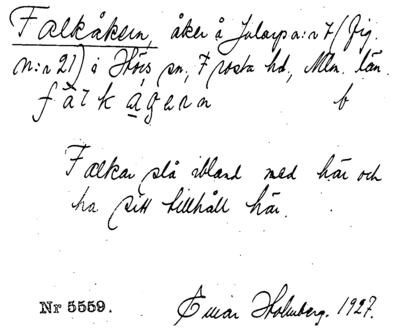 Falkåkern, åker å Jularp a:r 7 (Fig.
n:r 21) i Hörs sn, Frosta hd, Mlm. län.
falkågern b
Falkar slå ibland ned här och
ha sitt tillhåll här.
Nr 5559. Einar Holmberg. 1927.